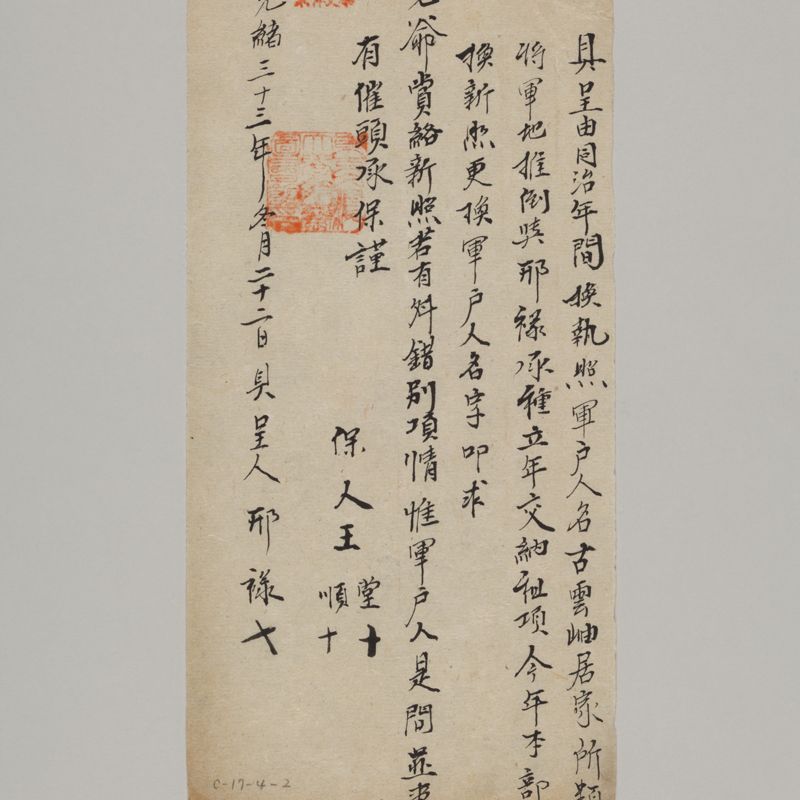 具呈由同治年間換執照軍戶人名古雲岫居家所
將軍地推倒與邢祿承種立年交納租項今年本部
換新照更換軍戶人名字叩求
爺賞給新照若有舛錯別項情惟軍戶人是問並
有催頭承保謹
保人王堂十
順十
光緒三十三年冬月二十二日具呈人邢祿七
C-17-4-2